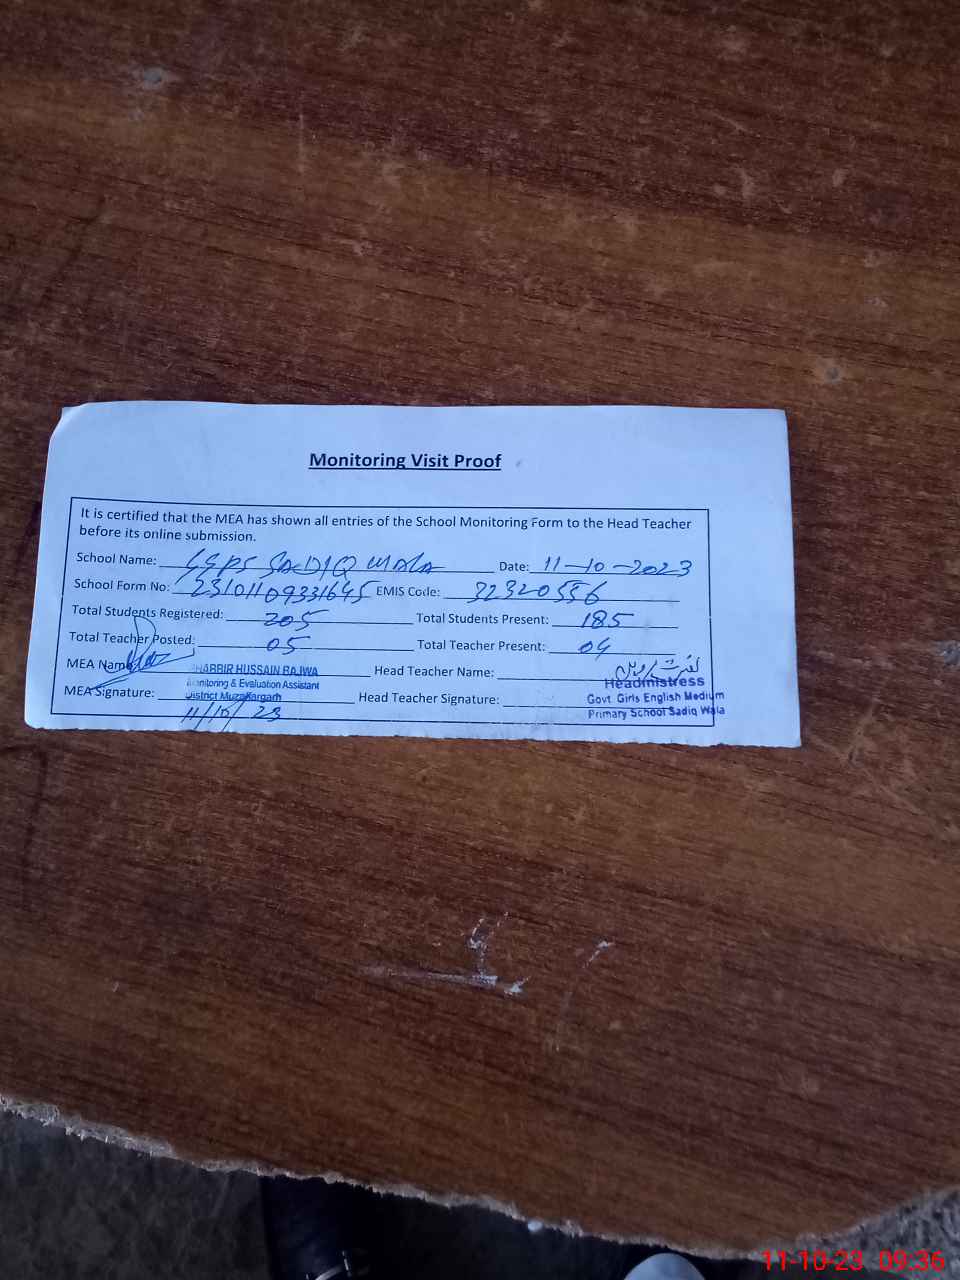 Monitoring Visit Proof
It is certified that the MEA has shown all entries of the School Monitoring Form to the Head Teacher
before its online submission.
School Name: GGPS SADIQ WALA Date: 11-10-2023
School Form No: 23101109331645 EMIS Code: 32320556
Total Students Registered: 205 Total Students Present: 185
Total Teacher Posted: 05 Total Teacher Present: 04
MEA Name: SHABBIR HUSSAIN BAJWA Head Teacher Name:
Monitoring & Evaluation Assistant Headmistress
MEA Signature: District Muzaffargarh Head Teacher Signature: Govt Girls English Medium
11/10/23 Primary School Sadiq Wala
11-10-23 09:36